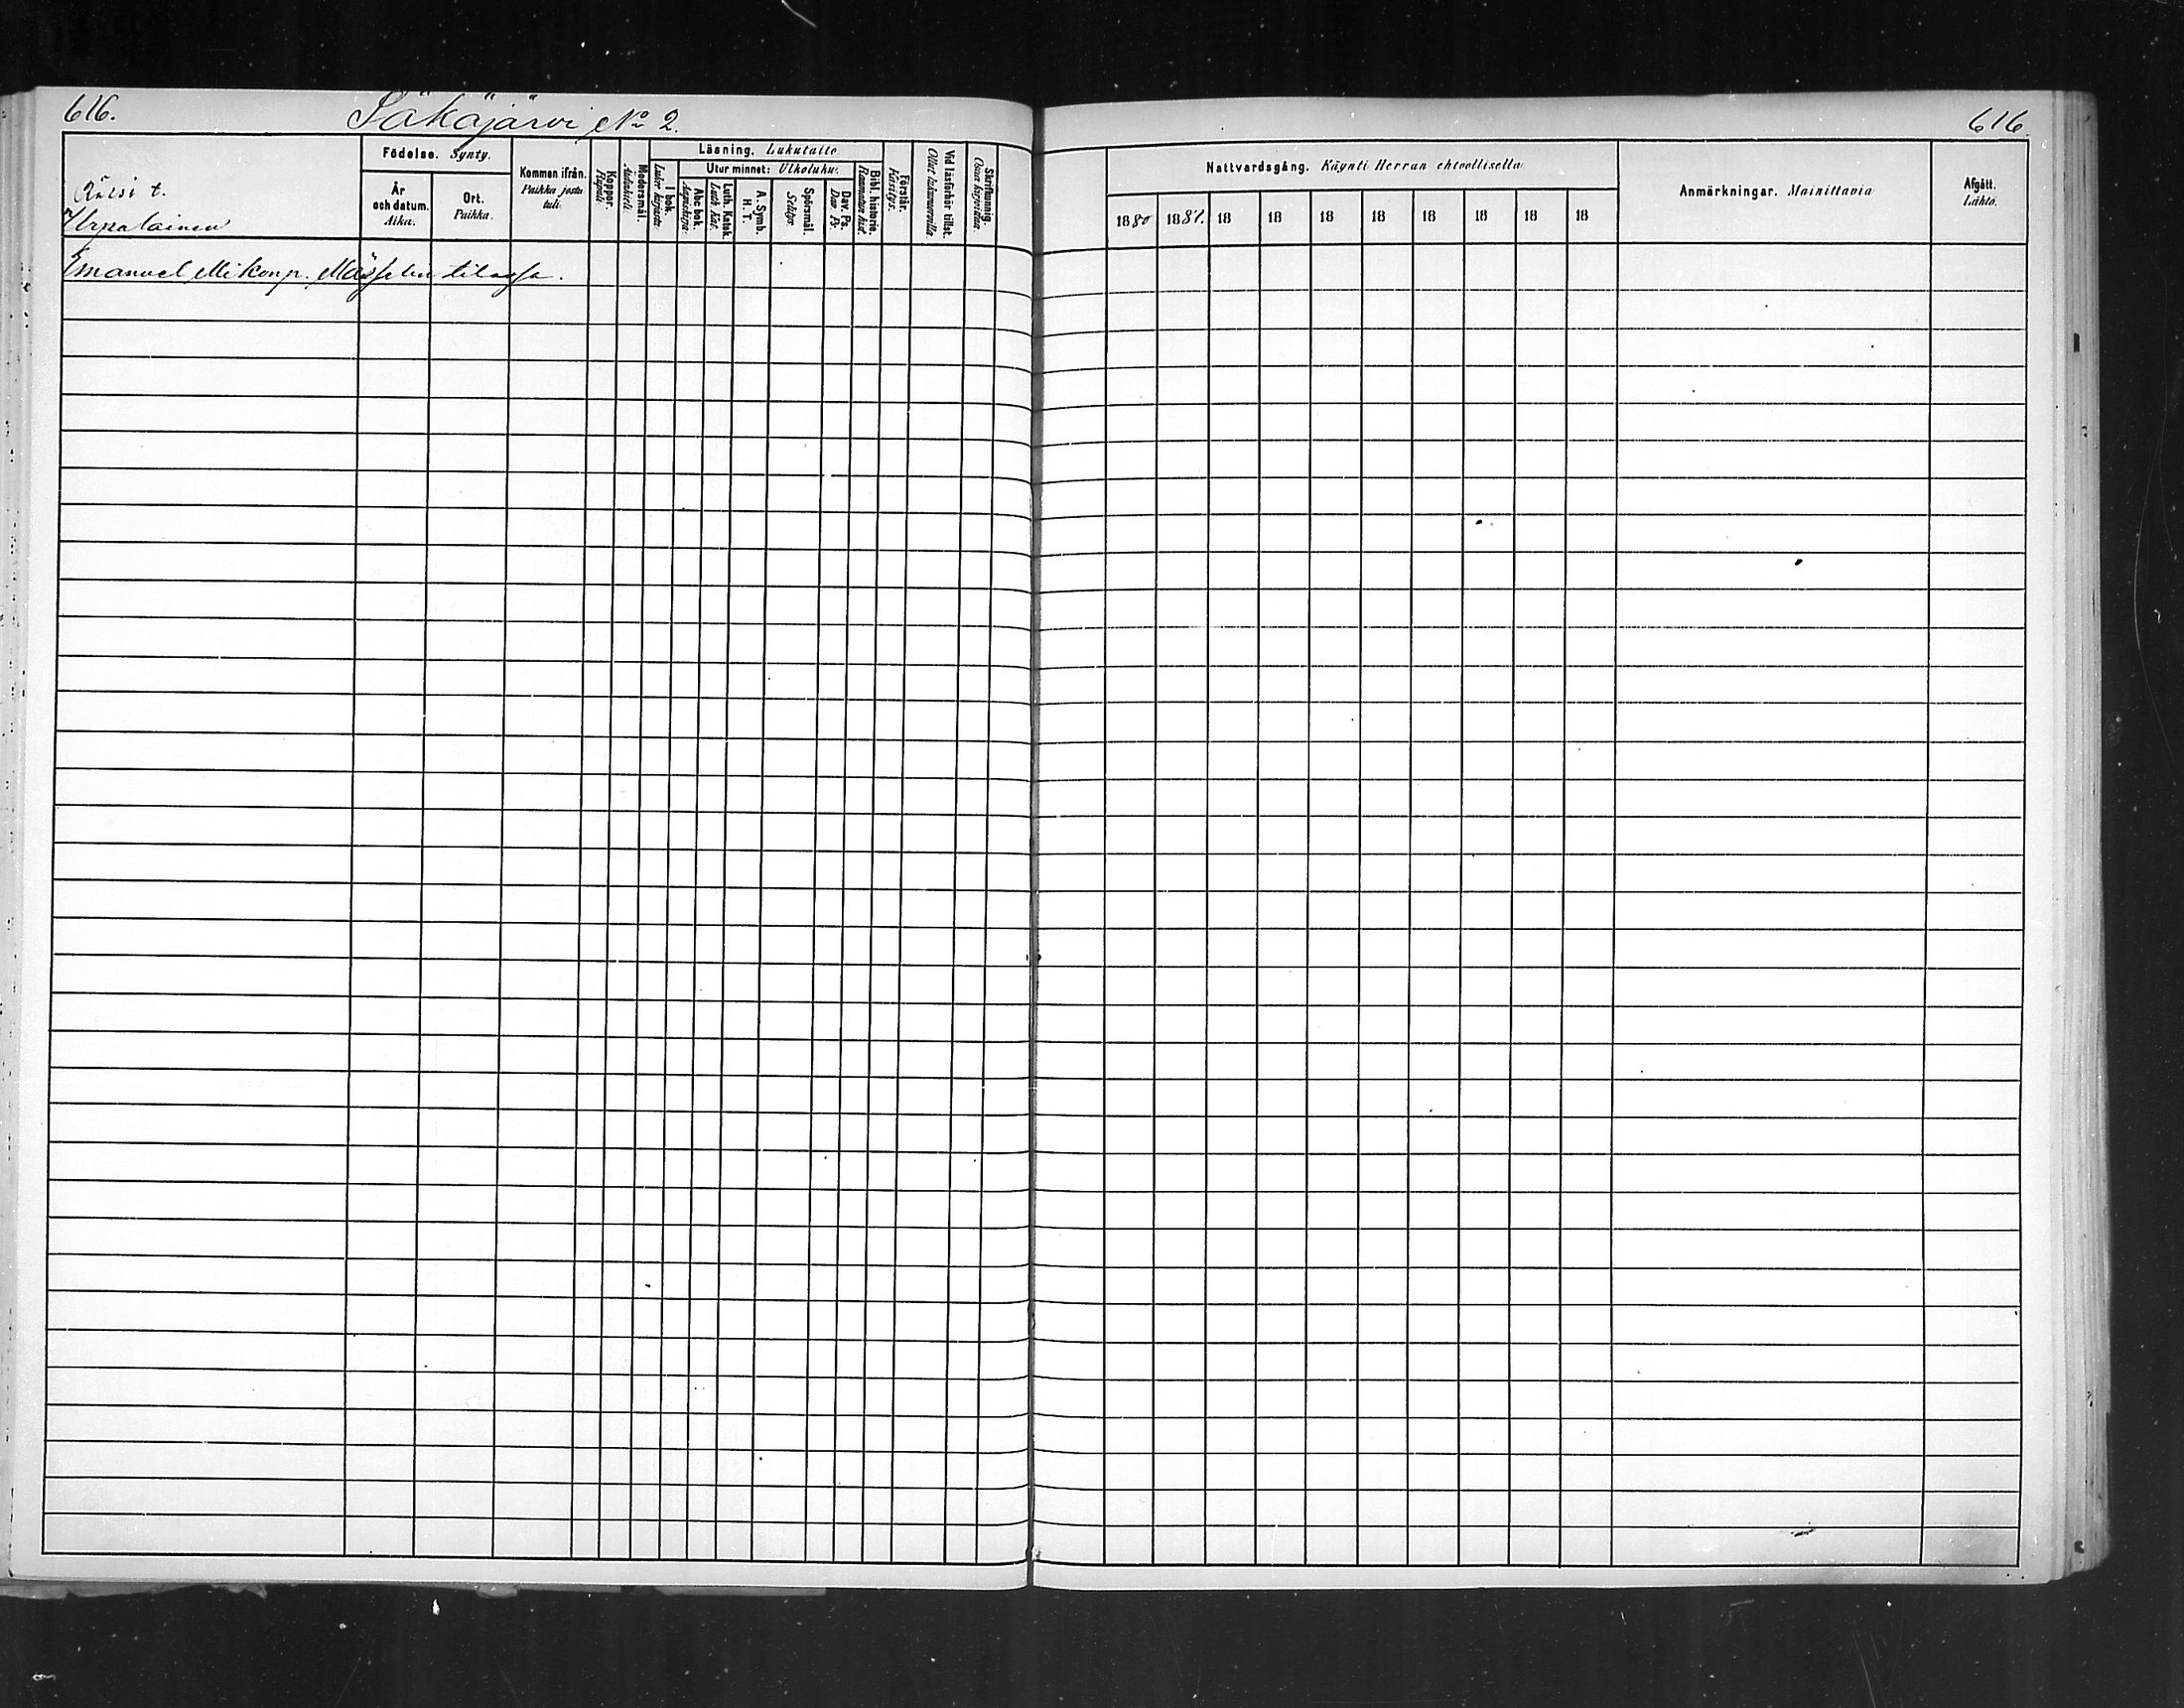 616.
Säkäjärvi No 2.
616.
Födelse. Synty.
År och datum. Aika.
Ort. Paikka.
Kommen ifrån. Paikka josta tuli.
Koppor. Rupuli.
Modersmål. Äidinkieli.
Läsning. Lukutaito
I bok. Lukee kirjasta.
Utur minnet: Ulkoluku.
Abc bok. Aapiskirja.
Luth. Katek. Luth. Kat.
A. Symb. H. T.
Spörsmål. Selitys.
Dav. Ps. Dav. Ps.
Bibl. historie. Raamatun hist.
Förstår. Käsitys.
Vid läsförhör tillst. Ollut lukuvuorolla.
Skriftkunnig. Osaa kirjoittaa.
Nattvardsgång. Käynti Herran ehtoollisella
1880 1881. 18 18 18 18 18 18 18 18
Anmärkningar. Mainittavia
Afgått. Lähtö.
t.
Urpalainen
Emanuel Mikonp. tilassa.